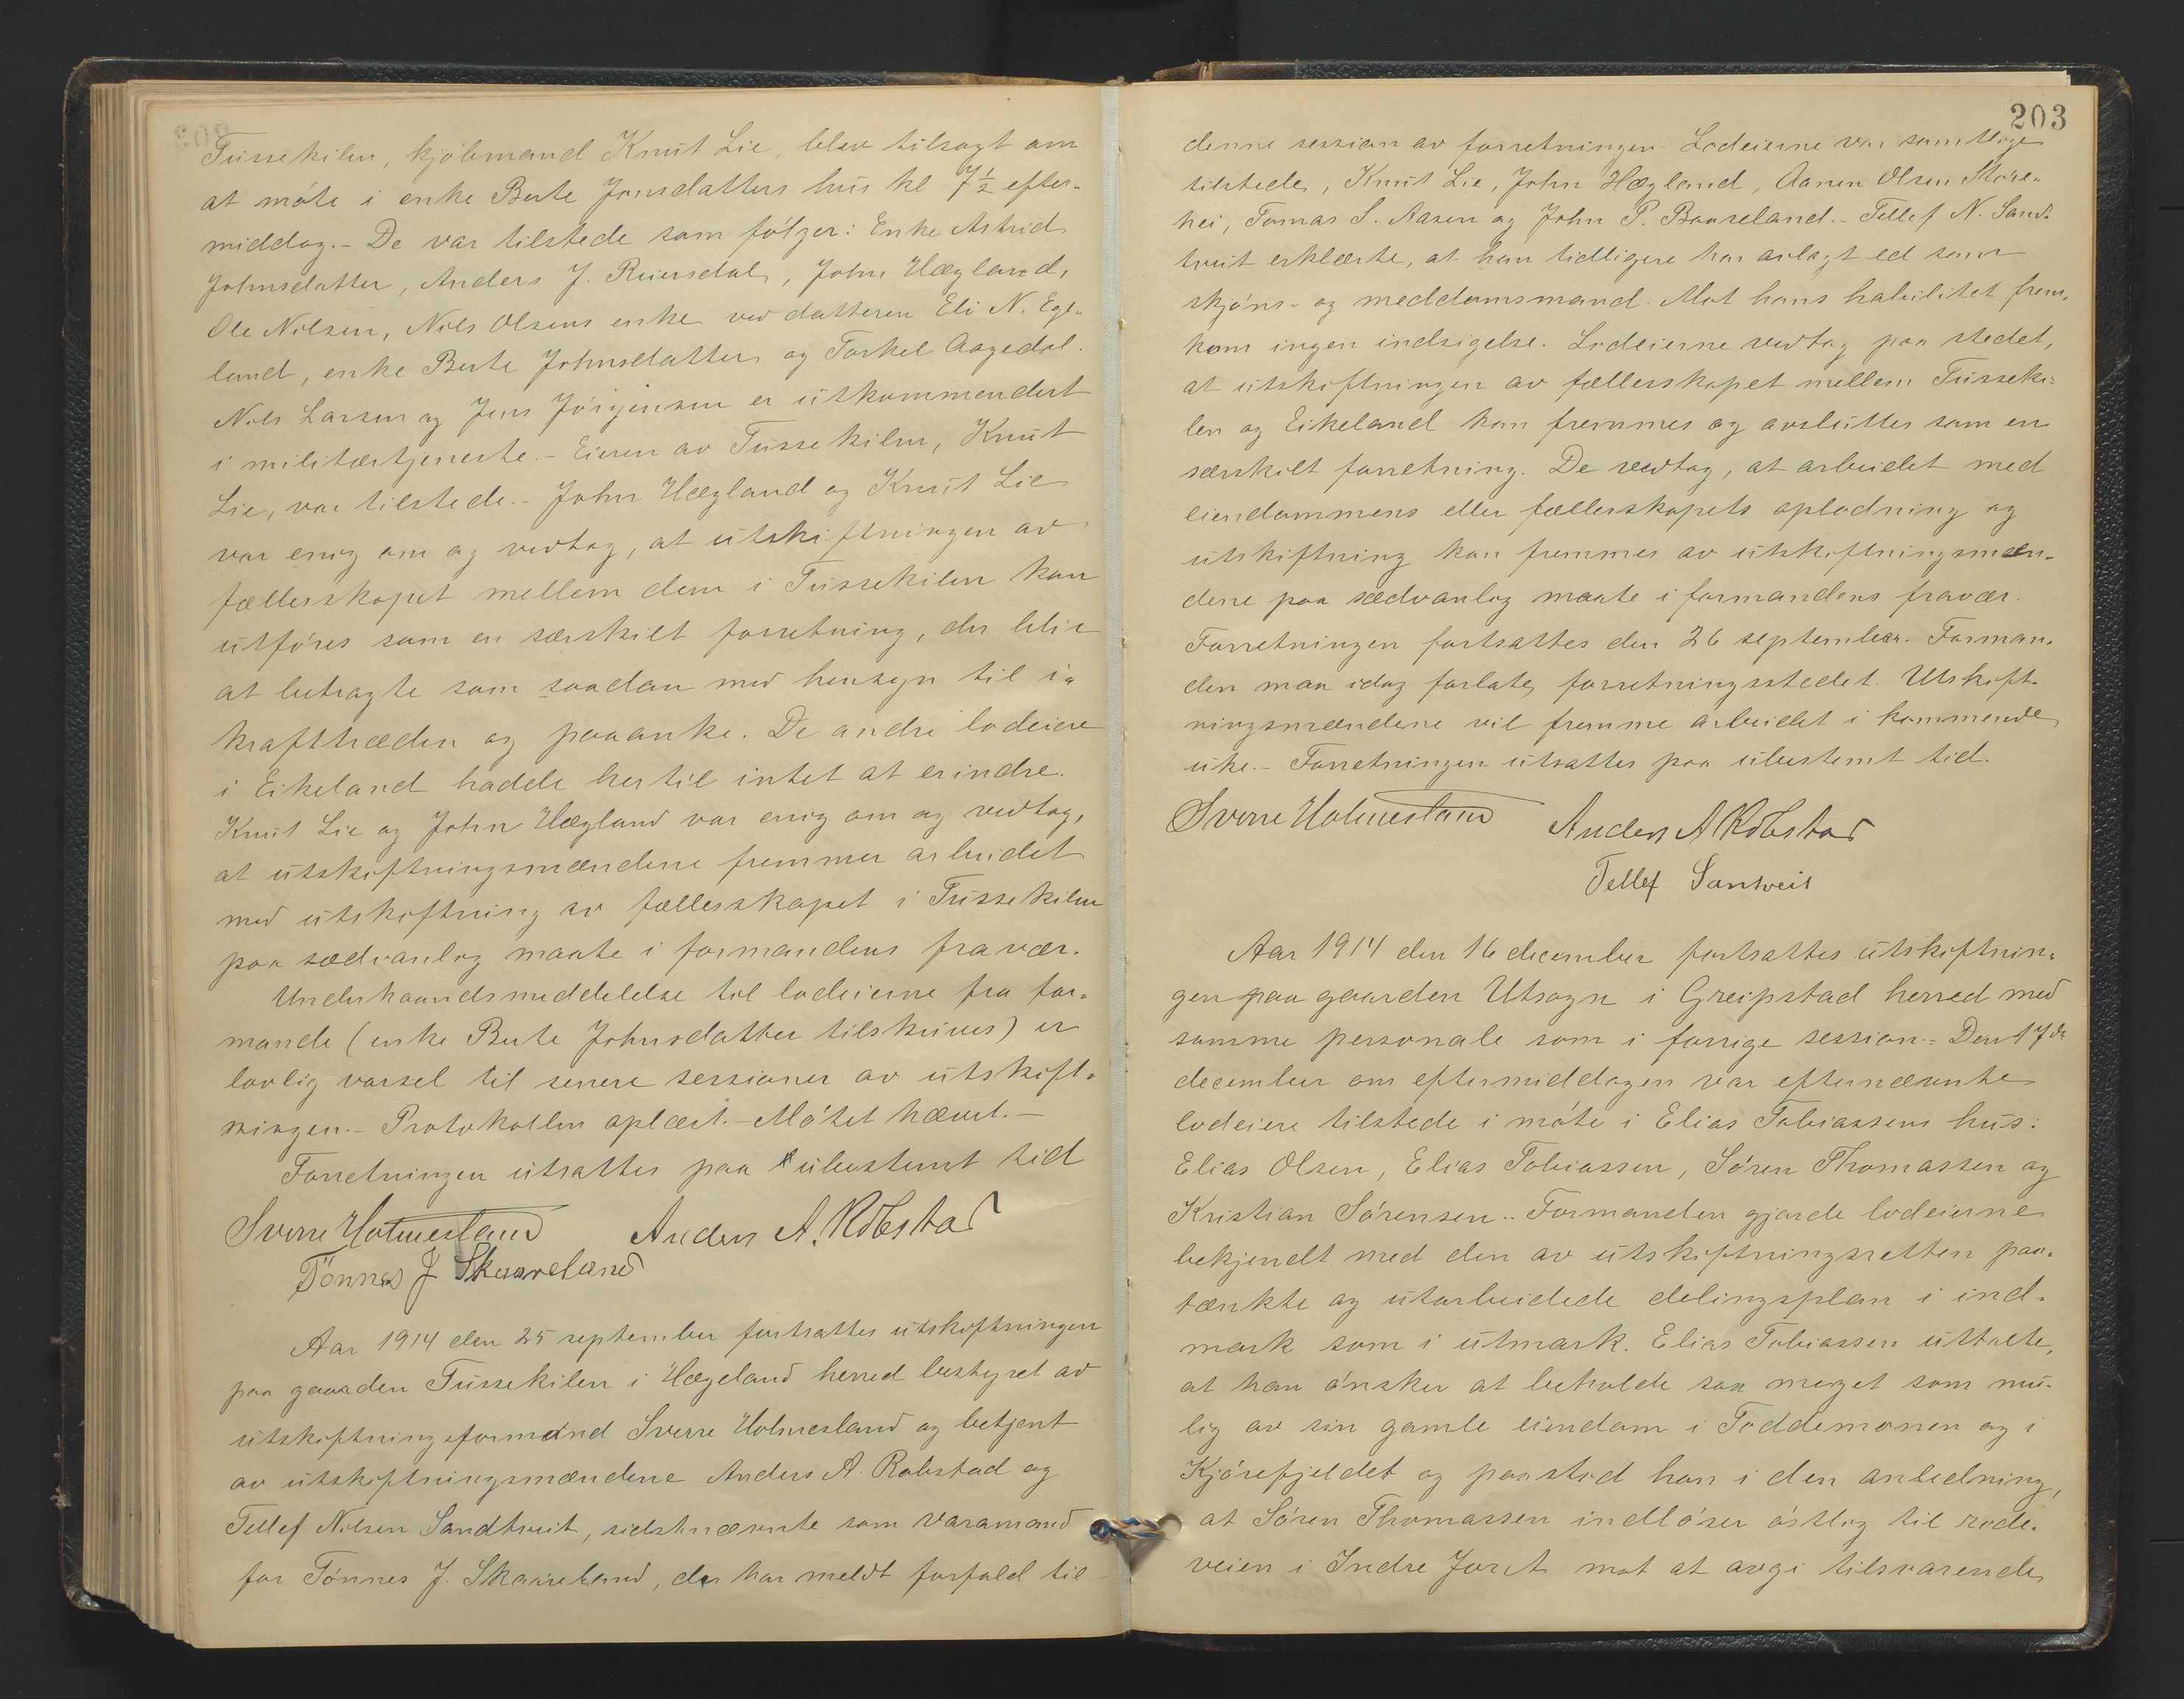 Tussekilen, kjøbmand Knut Lie, blev tilsagt om
at møte i enke Berte Jonsdatters hus kl 7½ efter-
middag.- De var tilstede som følger: Enke Astrid
Johnsdatter, Anders J. Reiersdal, John Hægland,
Ole Nilsen, Nils Olsens enke ved datteren Eli N. Ege-
land, enke Berte Johnsdatter og Torkel Aagedal.
Nils Larsen og Jens Jörgensen er utkommandert
i militærtjeneste.- Eieren av Tussekilen, Knut
Lie, var tilstede.- John Hægland og Knut Lie
var enig om og vedtog, at utskiftningen av
fællesskapet mellem dem i Tussekilen kan
utføres som en særskilt forretning, der blir
at betragte som saadan med hensyn til i-
krafttræden og paaanke. De andre lodeiere
i Eikeland hadde hertil intet at erindre.
Knut Lie og John Hægland var enig om og vedtog,
at utskiftningsmændene fremmer arbeidet
med utskiftning av fællesskapet i Tussekilen
paa sædvanlig maate i formandens fravær.
Underhaandsmeddelelse til lodeierne fra for-
mande (enke Berte Johnsdatter tilskrives) er
lovlig varsel til senere sessioner av utskift-
ningen.- Protokollen oplæst.- Møtet hævet.-
Forretningen utsattes paa ubestemt tid
Sverre Holmesland Anders A. Robstad
Tönnes J Skaareland
Aar 1914 den 25 september fortsattes utskiftningen
paa gaarden Tussekilen i Hægeland herred bestyret av
utskiftningsformand Sverre Holmesland og betjent
av utskiftningsmændene Anders A. Robstad og
Tellef Nilsen Sandtveit, sidstnævnte som varamand
for Tönnes J. Skaareland, der har meldt forfald til
203
denne session av forretningen. Lodeierne var samtlige
tilstede, Knut Lie, John Hægland, Aanen Olsen Stove-
hei, Tomas S. Aasen og John P. Baaseland.- Tellef N. Sand-
tveit erklærte, at han tidligere har avlagt ed som
skjøns- og meddomsmand. Mot hans habilitet frem-
kom ingen indsigelse. Lodeierne vedtog paa stedet,
at utskiftningen av fællesskapet mellem Tusseki-
len og Eikeland kan fremmes og avsluttes som en
særskilt forretning. De vedtog, at arbeidet med
eiendommens eller fællesskapets oplodning og
utskiftning kan fremmes av utskiftningsmæn-
dene paa sædvanlig maate i formandens fravær.
Forretningen fortsattes den 26 september. Forman-
den maa idag forlate forretningsstedet. Utskift-
ningsmændene vil fremme arbeidet i kommende
uke.- Forretningen utsattes paa ubestemt tid.
Sverre Holmesland Anders A Robstad
Tellef Santveit
Aar 1914 den 16 december fortsattes utskiftnin-
gen paa gaarden Utsogn i Greipstad herred med
samme personale som i forrige session.- Den 17de
december om eftermiddagen var efternævnte
lodeiere tilstede i møte i Elias Tobiassens hus:
Elias Olsen, Elias Tobiassen, Søren Thomassen og
Kristian Sørensen.- Formanden gjorde lodeierne
bekjendt med den av utskiftningsretten paa-
tænkte og utarbeidede delingsplan i ind-
mark som i utmark. Elias Tobiassen uttalte,
at han ønsker at beholde saa meget som mu-
lig av sin gamle eiendom i Toddemonen og i
Kjørefjeldet og paastod han i den anledning,
at Søren Thomassen indløser østlig til rode-
veien i Indre Joret mot at avgi tilsvarende